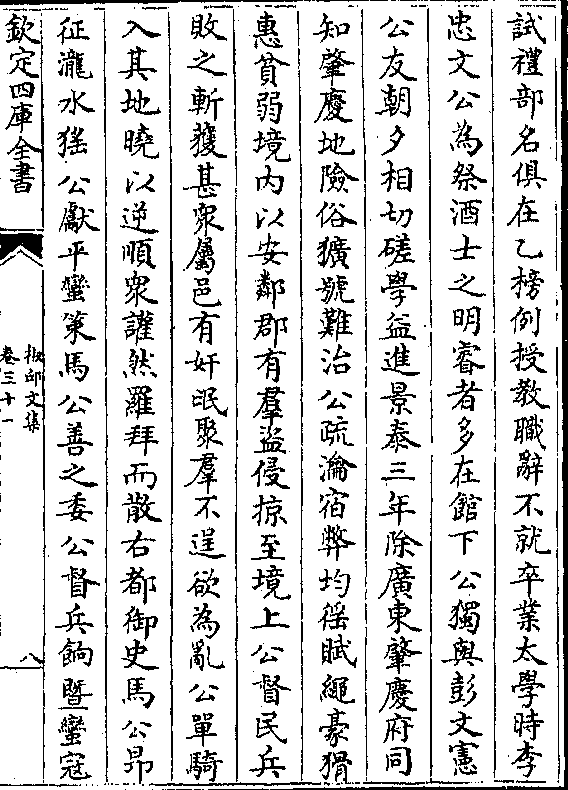 試禮部名俱在乙榜例授教職辭不就卒業太學時李
忠文公為祭酒士之明睿者多在館下公獨與彭文憲
公友朝夕相切磋學益進景泰三年除廣東肇慶府同
知肇慶地險俗獷號難治公疏瀹宿弊均徭賦繩豪猾
惠貧弱境内以安鄰郡有羣盜侵掠至境上公督民兵
敗之斬獲甚衆屬邑有奸氓聚羣不逞欲為亂公單騎
入其地曉以逆順衆讙然羅拜而散右都御史馬公昂
征瀧水猺公獻平蠻策馬公善之委公督兵餉暨蠻寇
欽定四庫全書
椒邱文集
卷三十一
八